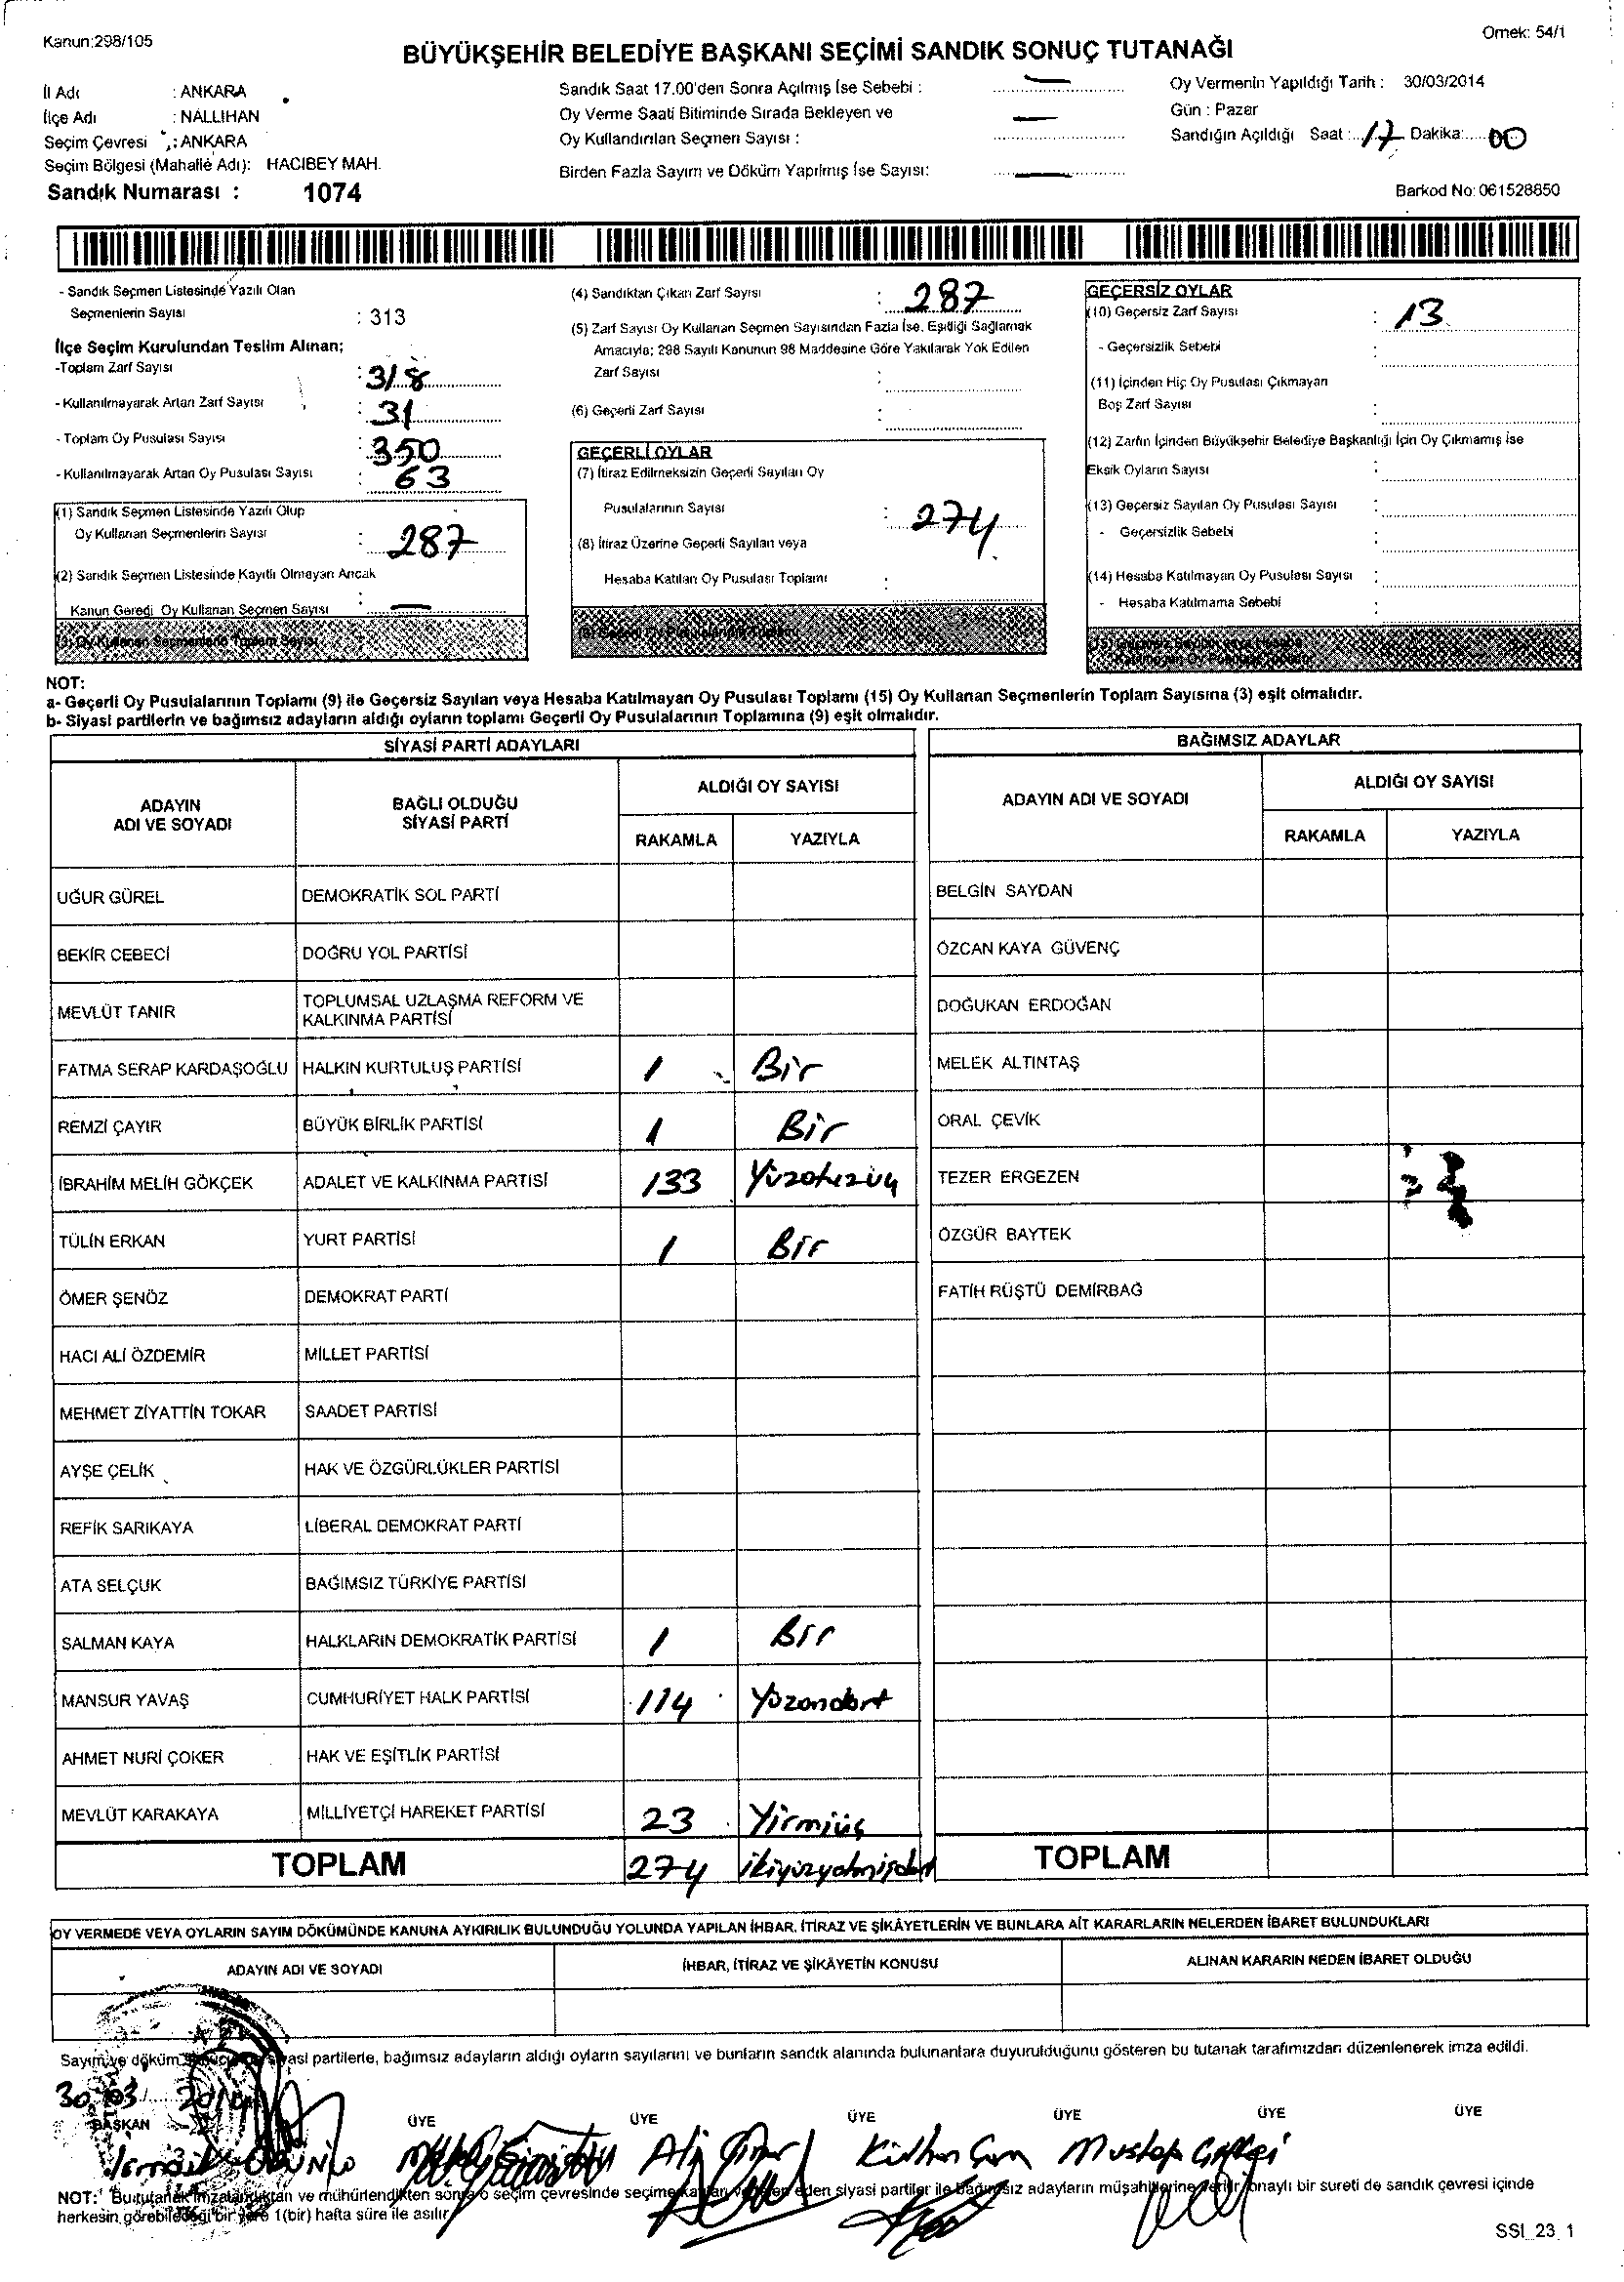 Kanun:298/105
Örnek: 54/1
BÜYÜKŞEHİR BELEDİYE BAŞKANI SEÇİMİ SANDIK SONUÇ TUTANAĞI
İl Adı : ANKARA
İlçe Adı : NALLIHAN
Seçim Çevresi : ANKARA
Seçim Bölgesi (Mahalle Adı): HACIBEY MAH.
Sandık Numarası : 1074
Sandık Saat 17.00'den Sonra Açılmış İse Sebebi : —
Oy Verme Saati Bitiminde Sırada Bekleyen ve
Oy Kullandırılan Seçmen Sayısı : —
Birden Fazla Sayım ve Döküm Yapılmış İse Sayısı: —
Oy Vermenin Yapıldığı Tarih : 30/03/2014
Gün : Pazar
Sandığın Açıldığı Saat : 17 Dakika: 00
Barkod No: 061528850
- Sandık Seçmen Listesinde Yazılı Olan
Seçmenlerin Sayısı : 313
İlçe Seçim Kurulundan Teslim Alınan;
-Toplam Zarf Sayısı : 318
- Kullanılmayarak Artan Zarf Sayısı : 31
- Toplam Oy Pusulası Sayısı : 350
- Kullanılmayarak Artan Oy Pusulası Sayısı : 63
(1) Sandık Seçmen Listesinde Yazılı Olup
Oy Kullanan Seçmenlerin Sayısı : 287
(2) Sandık Seçmen Listesinde Kayıtlı Olmayan Ancak
Kanun Gereği Oy Kullanan Seçmen Sayısı : —
(3) Oy Kullanan Seçmenlerin Toplam Sayısı
(4) Sandıktan Çıkan Zarf Sayısı : 287
(5) Zarf Sayısı Oy Kullanan Seçmen Sayısından Fazla İse, Eşitliği Sağlamak
Amacıyla; 298 Sayılı Kanunun 98 Maddesine Göre Yakılarak Yok Edilen
Zarf Sayısı :
(6) Geçerli Zarf Sayısı :
GEÇERLİ OYLAR
(7) İtiraz Edilmeksizin Geçerli Sayılan Oy
Pusulalarının Sayısı : 274
(8) İtiraz Üzerine Geçerli Sayılan veya
Hesaba Katılan Oy Pusulası Toplamı :
(9) Geçerli Oy Pusulalarının Toplamı
GEÇERSİZ OYLAR
(10) Geçersiz Zarf Sayısı : 13
- Geçersizlik Sebebi :
(11) İçinden Hiç Oy Pusulası Çıkmayan
Boş Zarf Sayısı :
(12) Zarfın İçinden Büyükşehir Belediye Başkanlığı İçin Oy Çıkmamış İse
Eksik Oyların Sayısı :
(13) Geçersiz Sayılan Oy Pusulası Sayısı :
- Geçersizlik Sebebi :
(14) Hesaba Katılmayan Oy Pusulası Sayısı :
- Hesaba Katılmama Sebebi :
NOT:
a- Geçerli Oy Pusulalarının Toplamı (9) ile Geçersiz Sayılan veya Hesaba Katılmayan Oy Pusulası Toplamı (15) Oy Kullanan Seçmenlerin Toplam Sayısına (3) eşit olmalıdır.
b- Siyasi partilerin ve bağımsız adayların aldığı oyların toplamı Geçerli Oy Pusulalarının Toplamına (9) eşit olmalıdır.
SİYASİ PARTİ ADAYLARI
ADAYIN ADI VE SOYADI BAĞLI OLDUĞU SİYASİ PARTİ ALDIĞI OY SAYISI
RAKAMLA YAZIYLA
UĞUR GÜREL DEMOKRATİK SOL PARTİ
BEKİR CEBECİ DOĞRU YOL PARTİSİ
MEVLÜT TANIR TOPLUMSAL UZLAŞMA REFORM VE KALKINMA PARTİSİ
FATMA SERAP KARDAŞOĞLU HALKIN KURTULUŞ PARTİSİ 1 Bir
REMZİ ÇAYIR BÜYÜK BİRLİK PARTİSİ 1 Bir
İBRAHİM MELİH GÖKÇEK ADALET VE KALKINMA PARTİSİ 133 Yüzotuzüç
TÜLİN ERKAN YURT PARTİSİ 1 Bir
ÖMER ŞENÖZ DEMOKRAT PARTİ
HACI ALİ ÖZDEMİR MİLLET PARTİSİ
MEHMET ZİYATTİN TOKAR SAADET PARTİSİ
AYŞE ÇELİK HAK VE ÖZGÜRLÜKLER PARTİSİ
REFİK SARIKAYA LİBERAL DEMOKRAT PARTİ
ATA SELÇUK BAĞIMSIZ TÜRKİYE PARTİSİ
SALMAN KAYA HALKLARIN DEMOKRATİK PARTİSİ 1 Bir
MANSUR YAVAŞ CUMHURİYET HALK PARTİSİ 114 Yüzondört
AHMET NURİ ÇOKER HAK VE EŞİTLİK PARTİSİ
MEVLÜT KARAKAYA MİLLİYETÇİ HAREKET PARTİSİ 23 Yirmiüç
TOPLAM 274 ikiyüzyetmişdört
BAĞIMSIZ ADAYLAR
ADAYIN ADI VE SOYADI ALDIĞI OY SAYISI
RAKAMLA YAZIYLA
BELGİN SAYDAN
ÖZCAN KAYA GÜVENÇ
DOĞUKAN ERDOĞAN
MELEK ALTINTAŞ
ORAL ÇEVİK
TEZER ERGEZEN
ÖZGÜR BAYTEK
FATİH RÜŞTÜ DEMİRBAĞ
TOPLAM
OY VERMEDE VEYA OYLARIN SAYIM DÖKÜMÜNDE KANUNA AYKIRILIK BULUNDUĞU YOLUNDA YAPILAN İHBAR, İTİRAZ VE ŞİKÂYETLERİN VE BUNLARA AİT KARARLARIN NELERDEN İBARET BULUNDUKLARI
ADAYIN ADI VE SOYADI İHBAR, İTİRAZ VE ŞİKÂYETİN KONUSU ALINAN KARARIN NEDEN İBARET OLDUĞU
Sayım ve döküm siyasi partilerle, bağımsız adayların aldığı oyların sayılarını ve bunların sandık alanında bulunanlara duyurulduğunu gösteren bu tutanak tarafımızdan düzenlenerek imza edildi.
30/03/2014
BAŞKAN ÜYE ÜYE ÜYE ÜYE ÜYE ÜYE
İsmail Ali Mustafa
NOT: Bu tutanak imzalandıktan ve mühürlendikten sonra o seçim çevresinde seçime katılan eden siyasi partiler ile bağımsız adayların müşahitlerine verilir, onaylı bir sureti de sandık çevresi içinde
herkesin görebileceği bir yere 1(bir) hafta süre ile asılır.
SSI_23_1